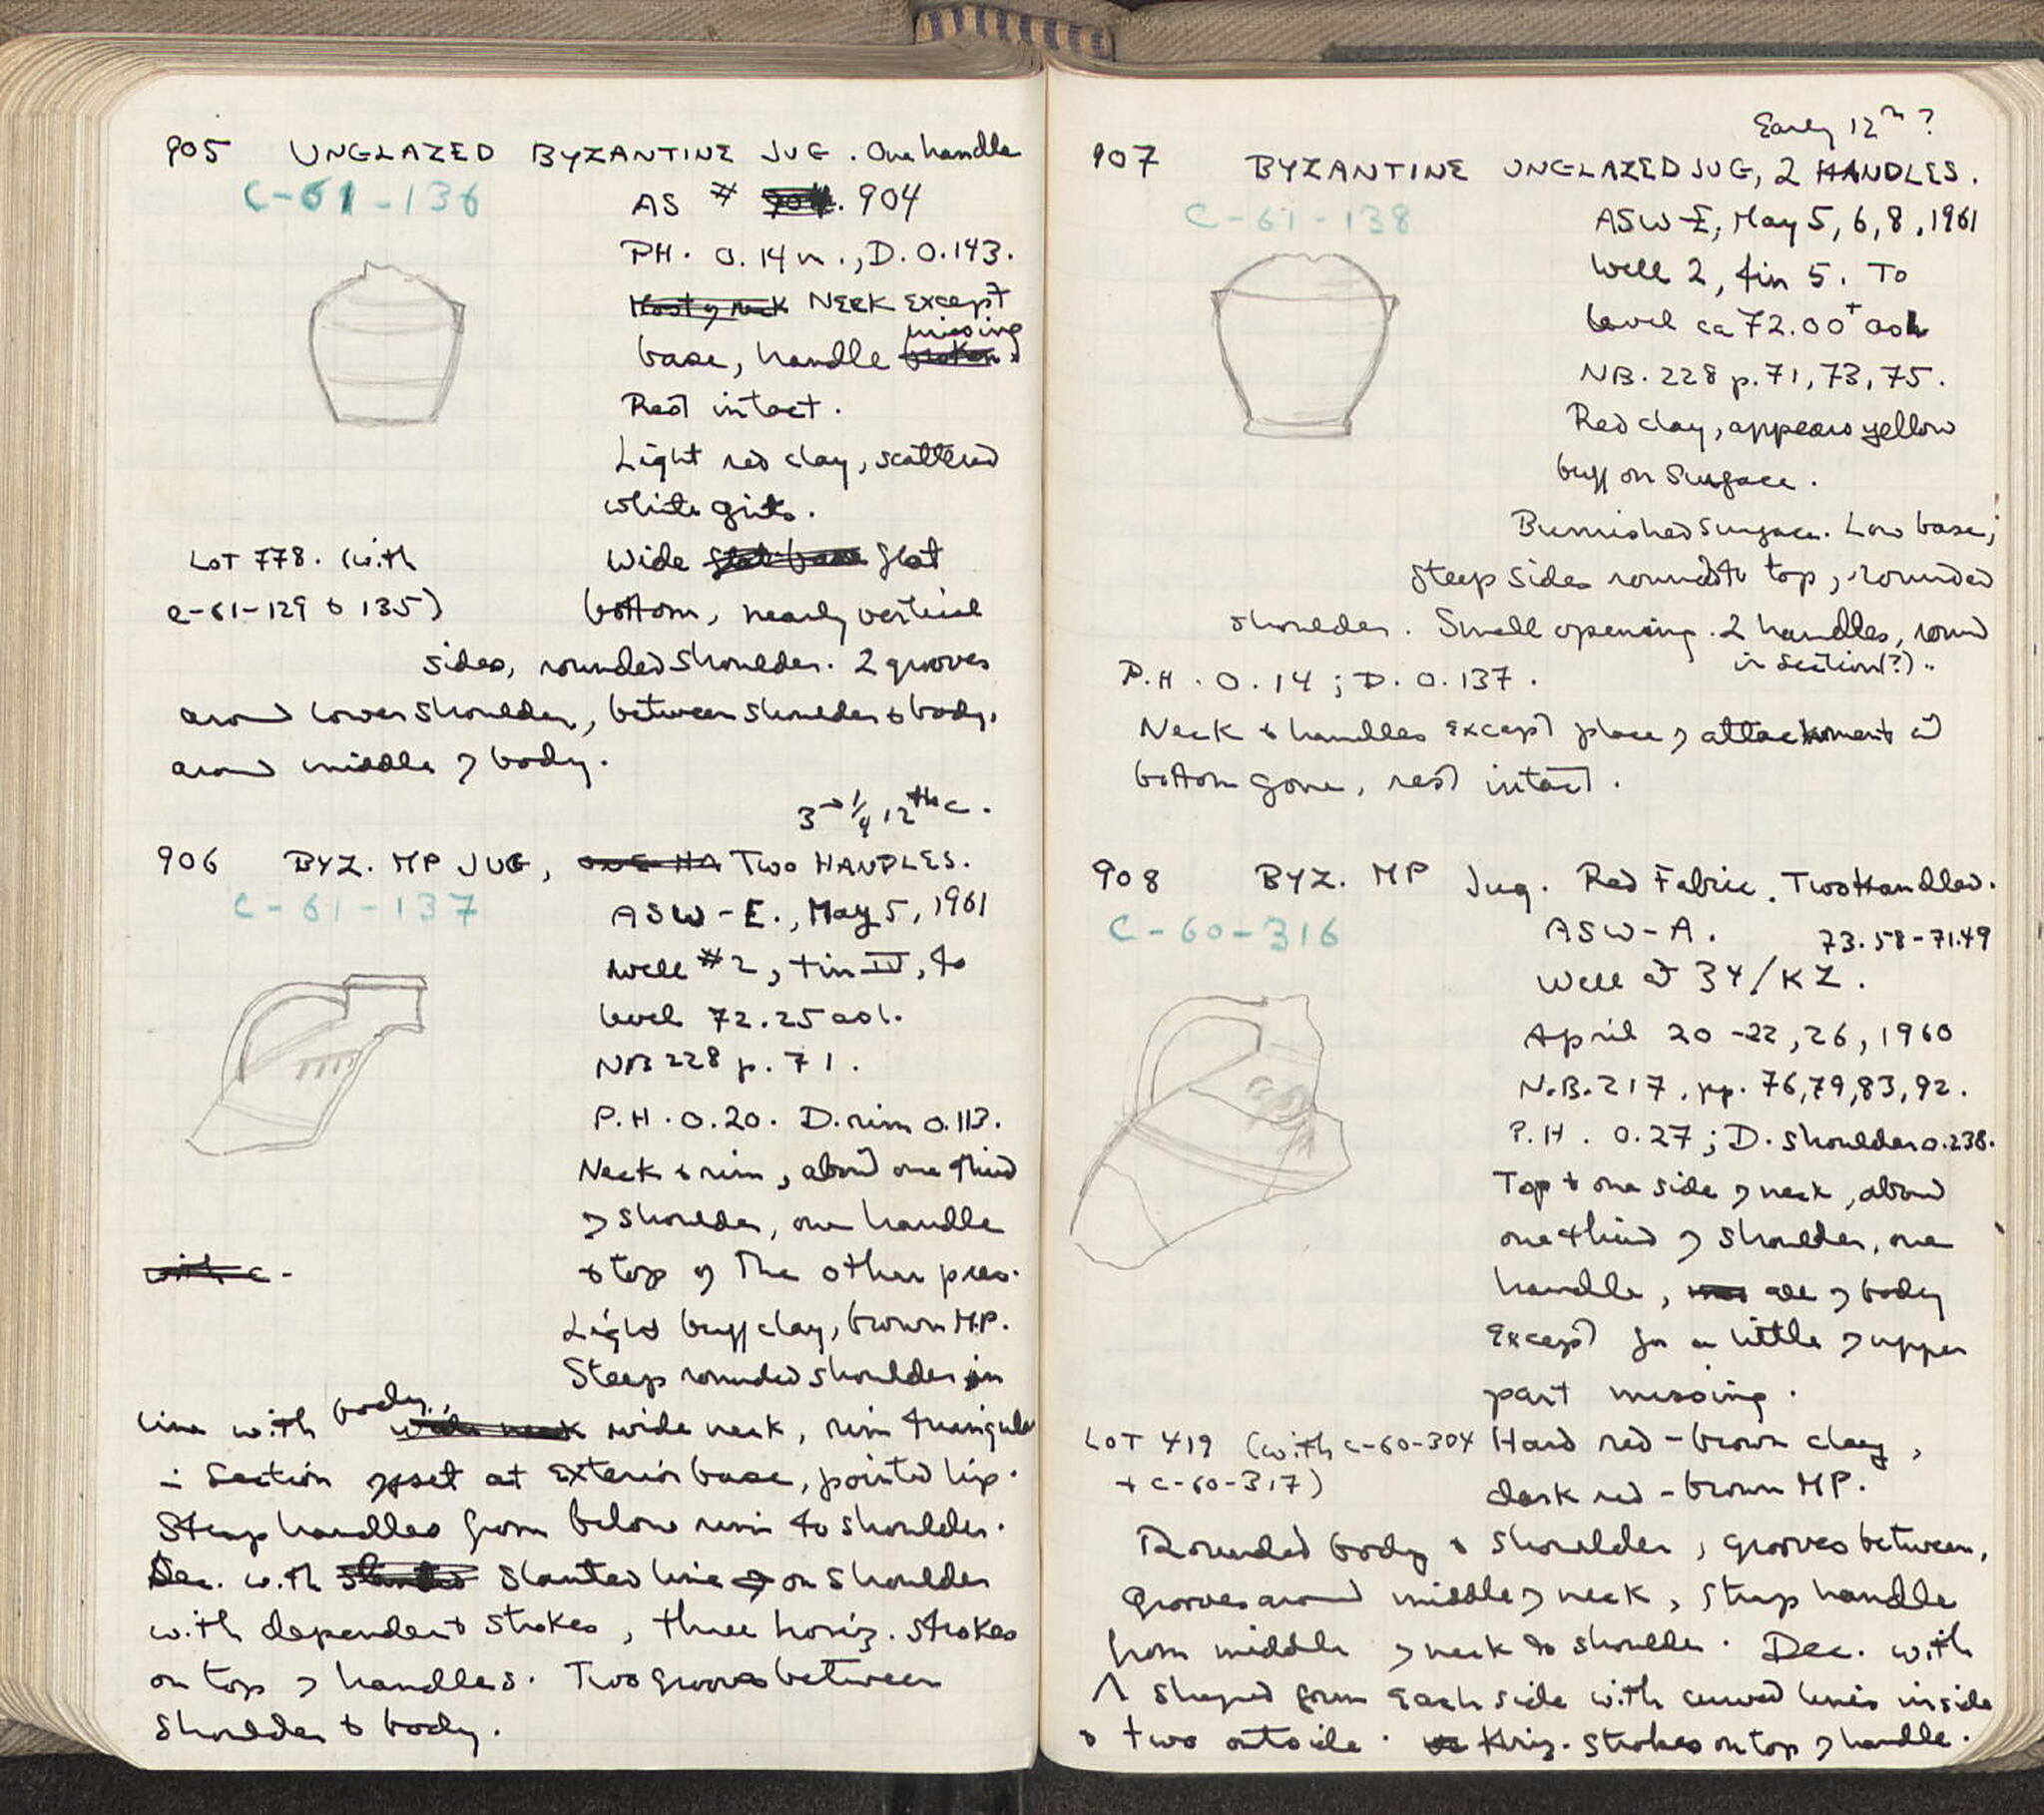 905 UNGLAZED BYZANTINE JUG. One handle
C-61-136
AS # 904. 904
PH. 0.14 m., D. 0.143.
Most of neck NECK except
missing
base, handle broken.
Rest intact.
Light red clay, scattered
white grits.
Wide flat base flat
LOT 778. (with
C-61-129 & 135)
bottom, nearly vertical
sides, rounded shoulder. 2 grooves
around lower shoulder, between shoulder & body,
around middle of body.
3rd 1/4 12th c.
906 BYZ. MP JUG, ONE HA TWO HANDLES.
C-61-137
ASW-E., May 5, 1961
Well #2, tin IV, to
level 72.25 asl.
NB 228 p. 71.
P.H. 0.20. D. rim 0.113.
Neck & rim, about one third
of shoulder, one handle
with C-
& top of the other pres.
Light buff clay, brown MP.
Steep rounded shoulder in
line with body, wide neck wide neck, rim triangular
in section offset at exterior base, pointed lip.
Strap handles from below rim to shoulder.
Dec. with slanted slanted line on shoulder
with dependent strokes, three horiz. strokes
on top of handles. Two grooves between
shoulder & body.
Early 12th?
907 BYZANTINE UNGLAZED JUG, 2 HANDLES.
C-61-138
ASW-E, May 5, 6, 8, 1961
Well 2, tin 5. To
level ca 72.00+ asl
NB. 228 p. 71, 73, 75.
Red clay, appears yellow
buff on surface.
Burnished surface. Low base;
steep sides round to top, rounded
shoulder. Small opening. 2 handles, round
in section(?)..
P.H. 0.14; D. 0.137.
Neck & handles except place of attachment at
bottom gone, rest intact.
908 BYZ. MP Jug. Red Fabric. Two Handled.
C-60-316
ASW-A. 73.58-71.49
Well at 34/KZ.
April 20-22, 26, 1960
N.B. 217, pp. 76, 79, 83, 92.
P.H. 0.27; D. shoulder 0.238.
Top & one side of neck, about
one third of shoulder, one
handle, all of body
except for a little of upper
part missing.
LOT 419 (with C-60-304
+ C-60-317)
Hard red-brown clay,
dark red-brown MP.
Rounded body & shoulder, grooves between,
grooves around middle of neck, strap handle
from middle of neck to shoulder. Dec. with
Λ shaped form each side with curved lines inside
& two outside. Horiz. strokes on top of handle.